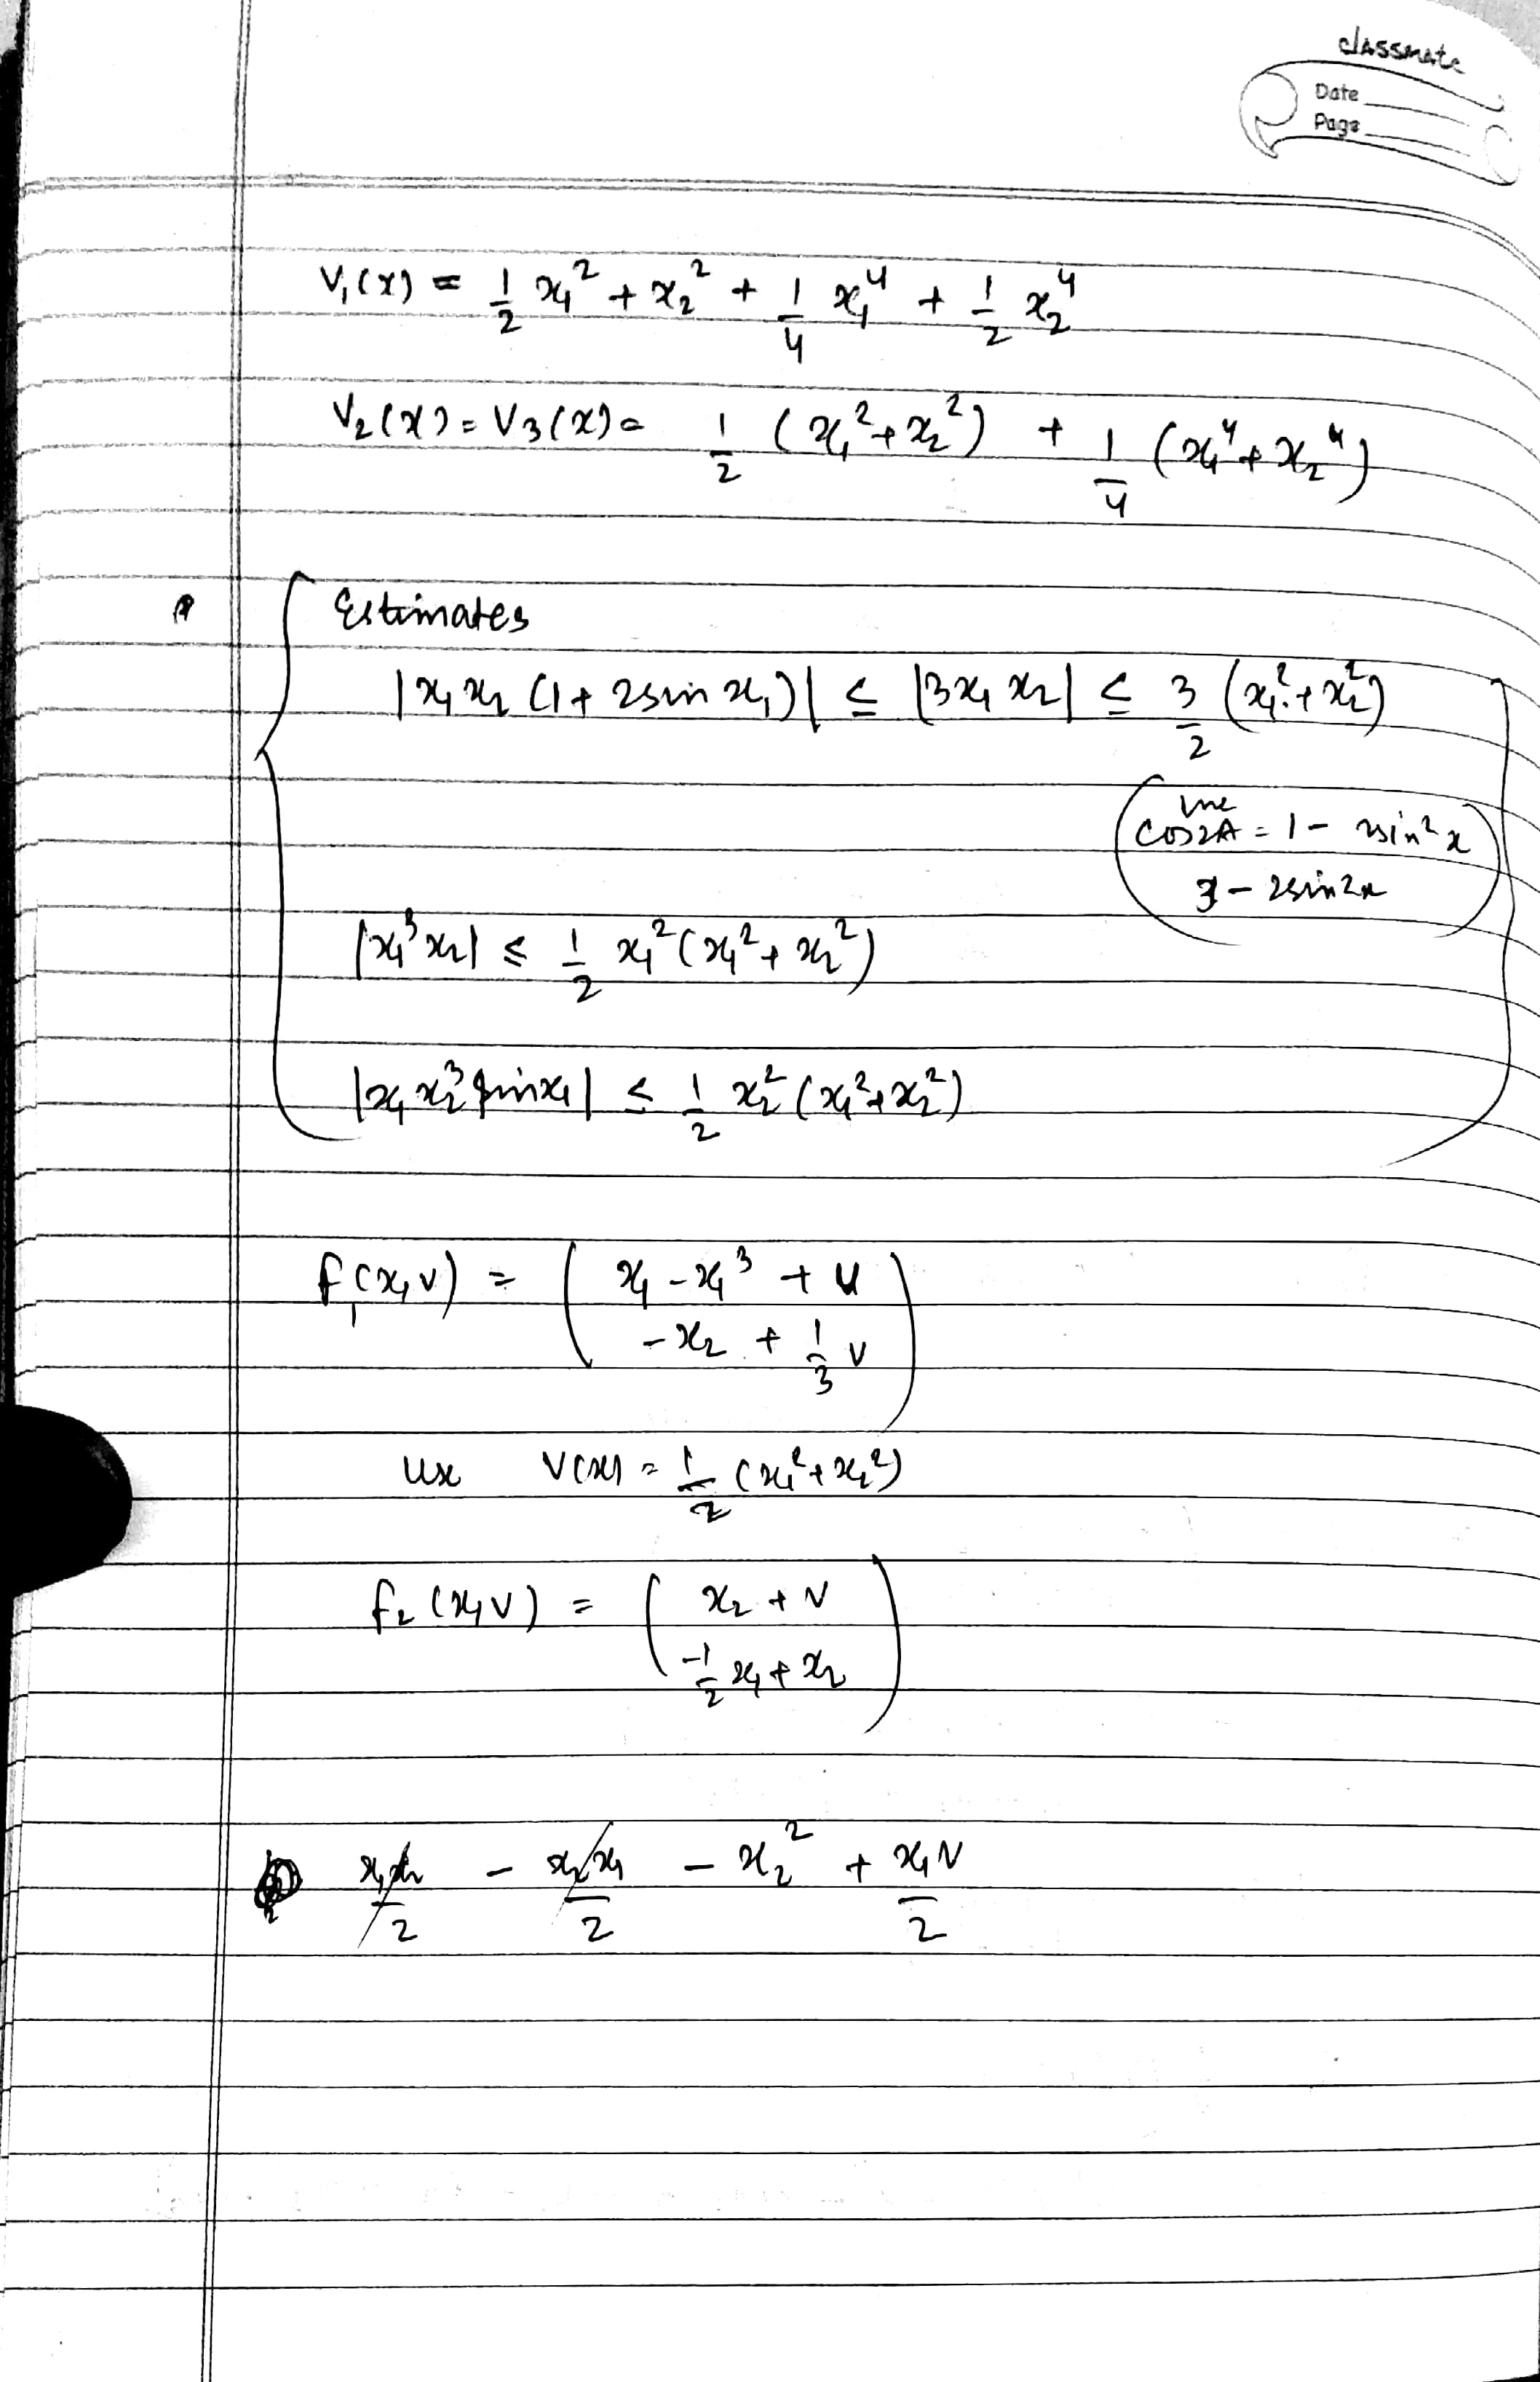 classmate
Date
Page
V₁(x) = 1/2 x₁² + x₂² + 1/4 x₁⁴ + 1/2 x₂⁴
V₂(x) = V₃(x) = 1/2 (x₁² + x₂²) + 1/4 (x₁⁴ + x₂⁴)
Estimates
|x₁ x₂ (1 + 2sin x₁)| ≤ |3x₁ x₂| ≤ 3/2 (x₁² + x₂²)
cos2A = 1 - 2sin² x
- 2sin2x
|x₁³ x₂| ≤ 1/2 x₁² (x₁² + x₂²)
|x₁ x₂³ sin x₁| ≤ 1/2 x₂² (x₁² + x₂²)
f₁(x, v) = ( x₁ - x₁³ + v
-x₂ + 1/3 v )
use V(x) = 1/2 (x₁² + x₂²)
f₂(x, v) = ( x₂ + v
-1/2 x₁ + x₂ )
x₁x₂/2 - x₂x₁/2 - x₂² + x₁v/2